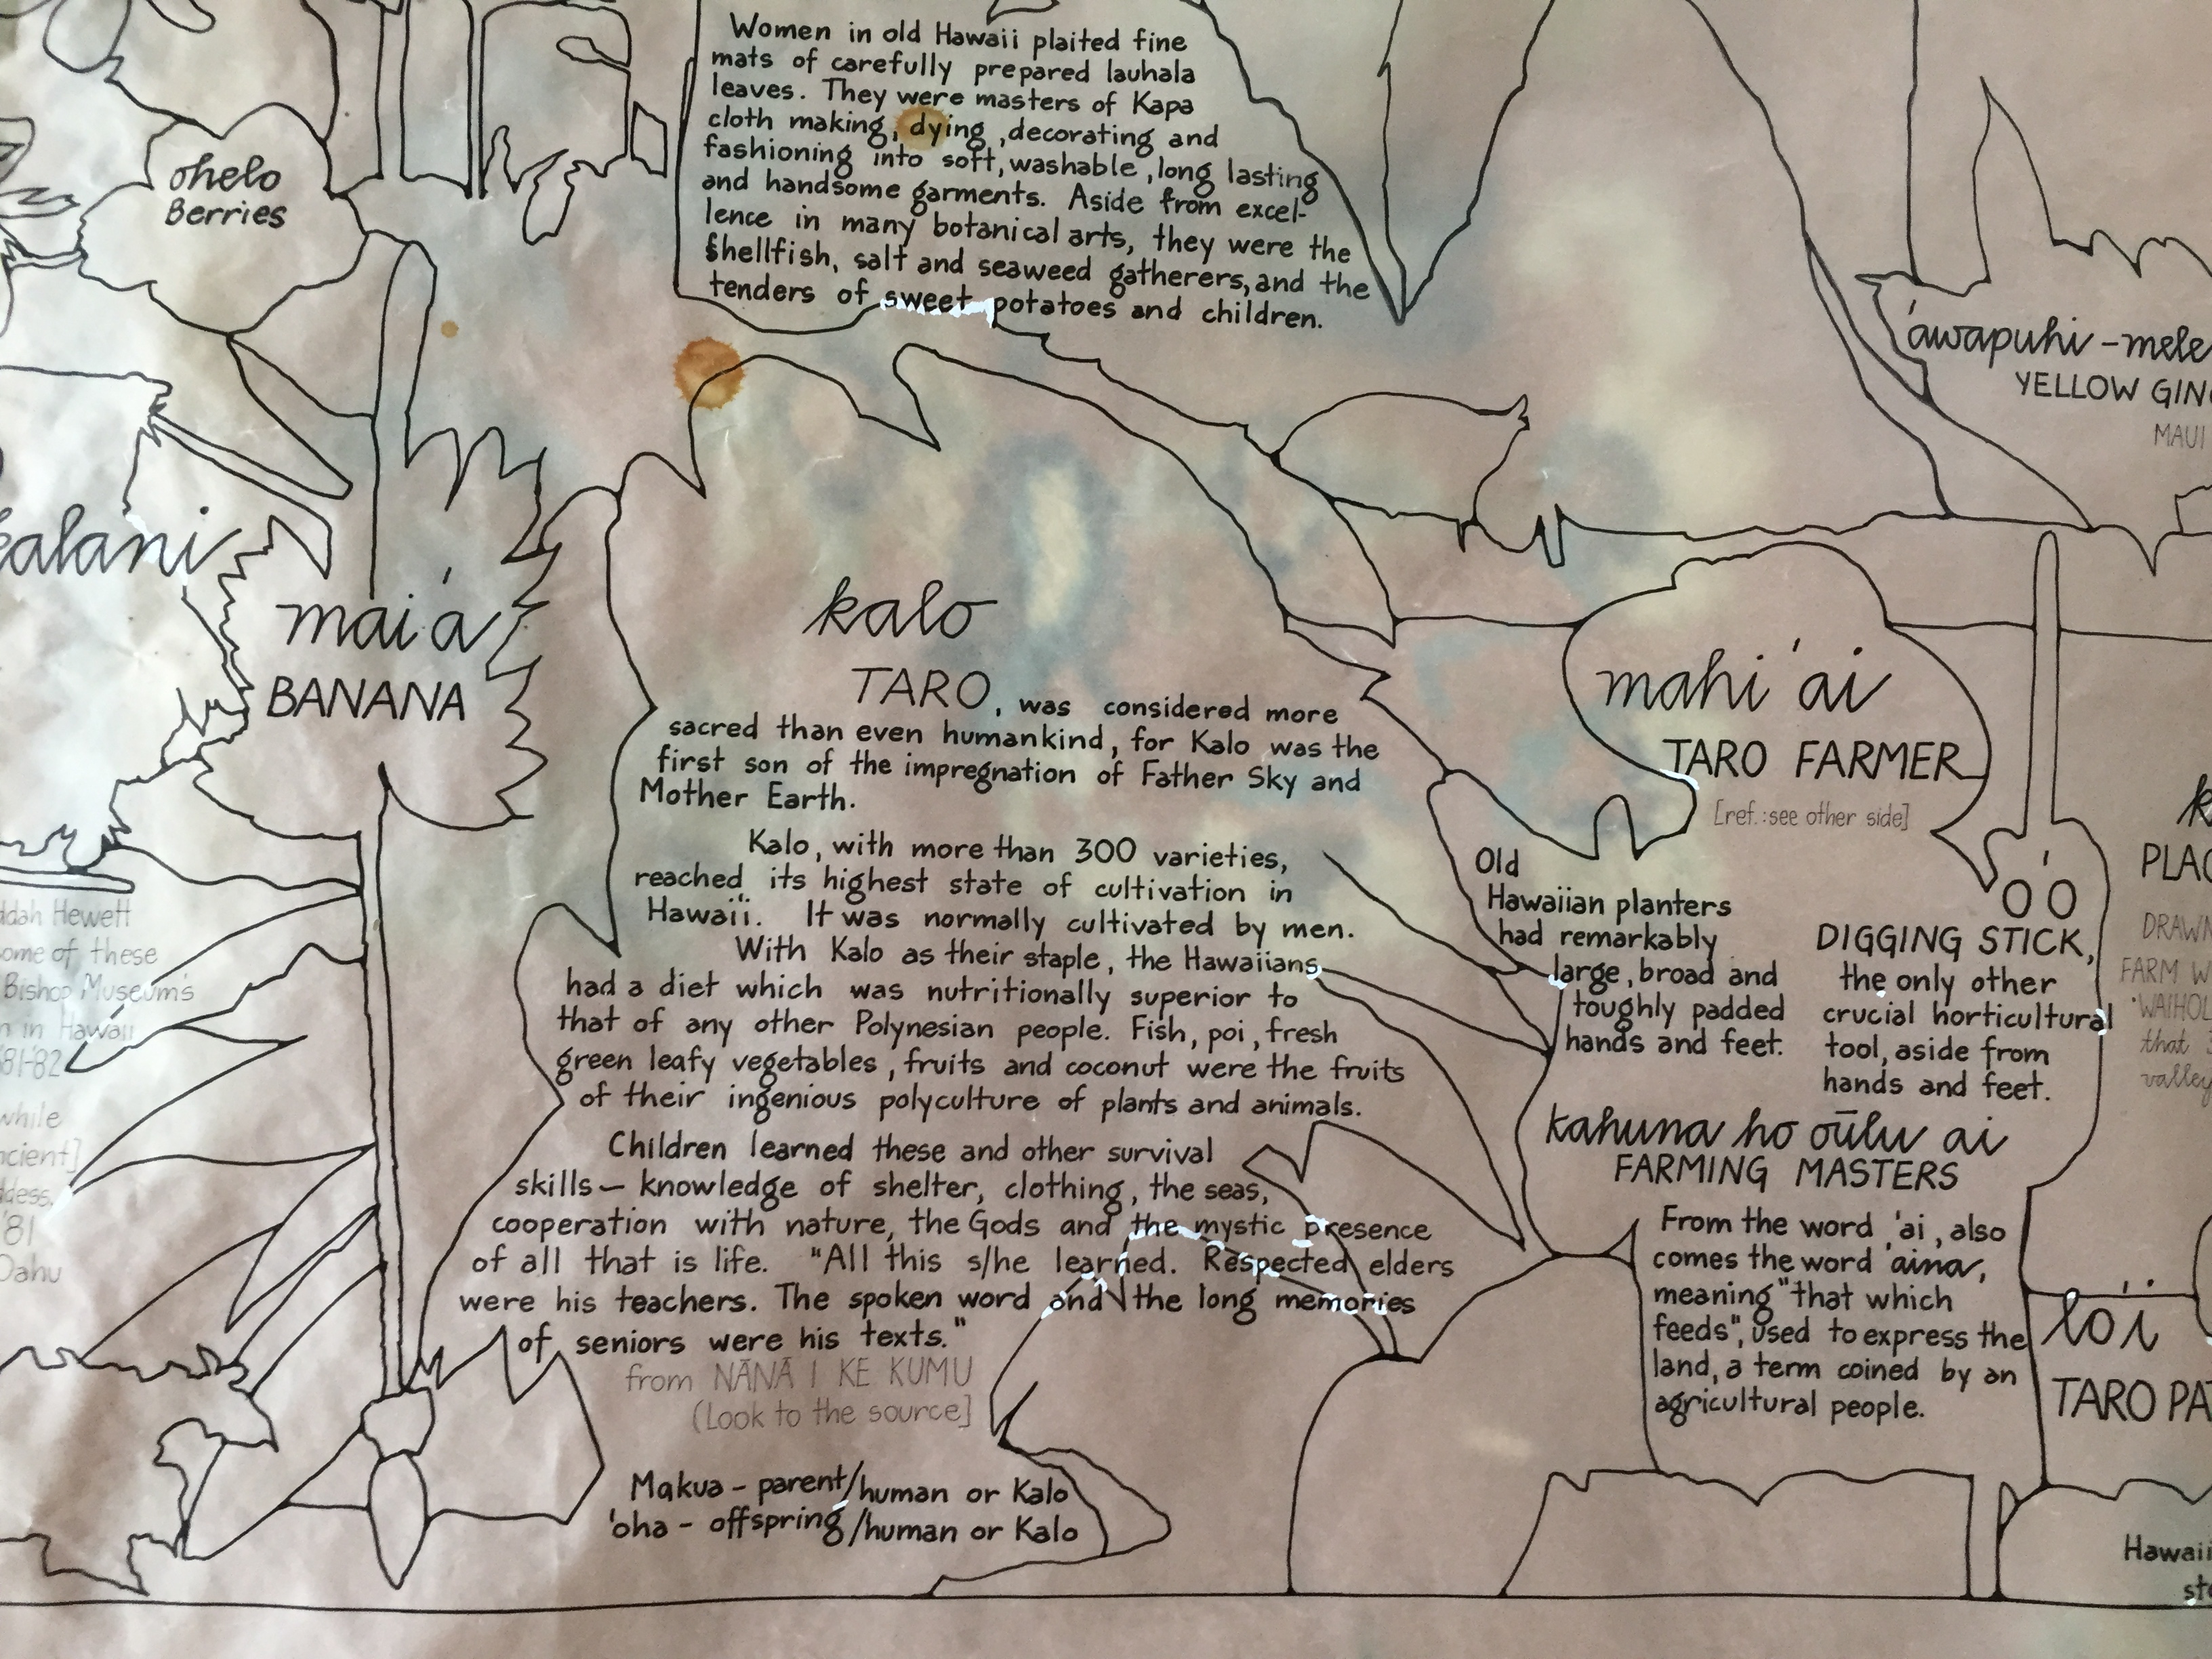 Women in old Hawaii plaited fine
mats of carefully prepared lauhala
leaves. They were masters of Kapa
cloth making, dying, decorating and
fashioning into soft, washable, long lasting
and handsome garments. Aside from excel-
lence in many botanical arts, they were the
shellfish, salt and seaweed gatherers, and the
tenders of sweet potatoes and children.
ohelo
Berries
'awapuhi-mele
YELLOW
MAUI
mai'a
BANANA
kalo
TARO, was considered more
sacred than even humankind, for Kalo was the
first son of the impregnation of Father Sky and
Mother Earth.
Kalo, with more than 300 varieties,
reached its highest state of cultivation in
Hawai'i. It was normally cultivated by men.
With Kalo as their staple, the Hawaiians
had a diet which was nutritionally superior to
that of any other Polynesian people. Fish, poi, fresh
green leafy vegetables, fruits and coconut were the fruits
of their ingenious polyculture of plants and animals.
Children learned these and other survival
skills — knowledge of shelter, clothing, the seas,
cooperation with nature, the Gods and the mystic presence
of all that is life. "All this s/he learned. Respected elders
were his teachers. The spoken word and the long memories
of seniors were his texts."
from NĀNĀ I KE KUMU
(Look to the source]
Makua - parent/human or Kalo
'oha - offspring/human or Kalo
mahi'ai
TARO FARMER
[ref.: see other side]
Old
Hawaiian planters
had remarkably
large, broad and
toughly padded
hands and feet.
O'O
DIGGING STICK,
the only other
crucial horticultural
tool, aside from
hands and feet.
kahuna ho oūlu ai
FARMING MASTERS
From the word 'ai, also
comes the word 'aina,
meaning "that which
feeds", used to express the
land, a term coined by an
agricultural people.
lo'i
TARO
Hewett
some of these
Bishop Museum's
in Hawaii
'81-'82
while
'81
Oahu
FARM
that
valley